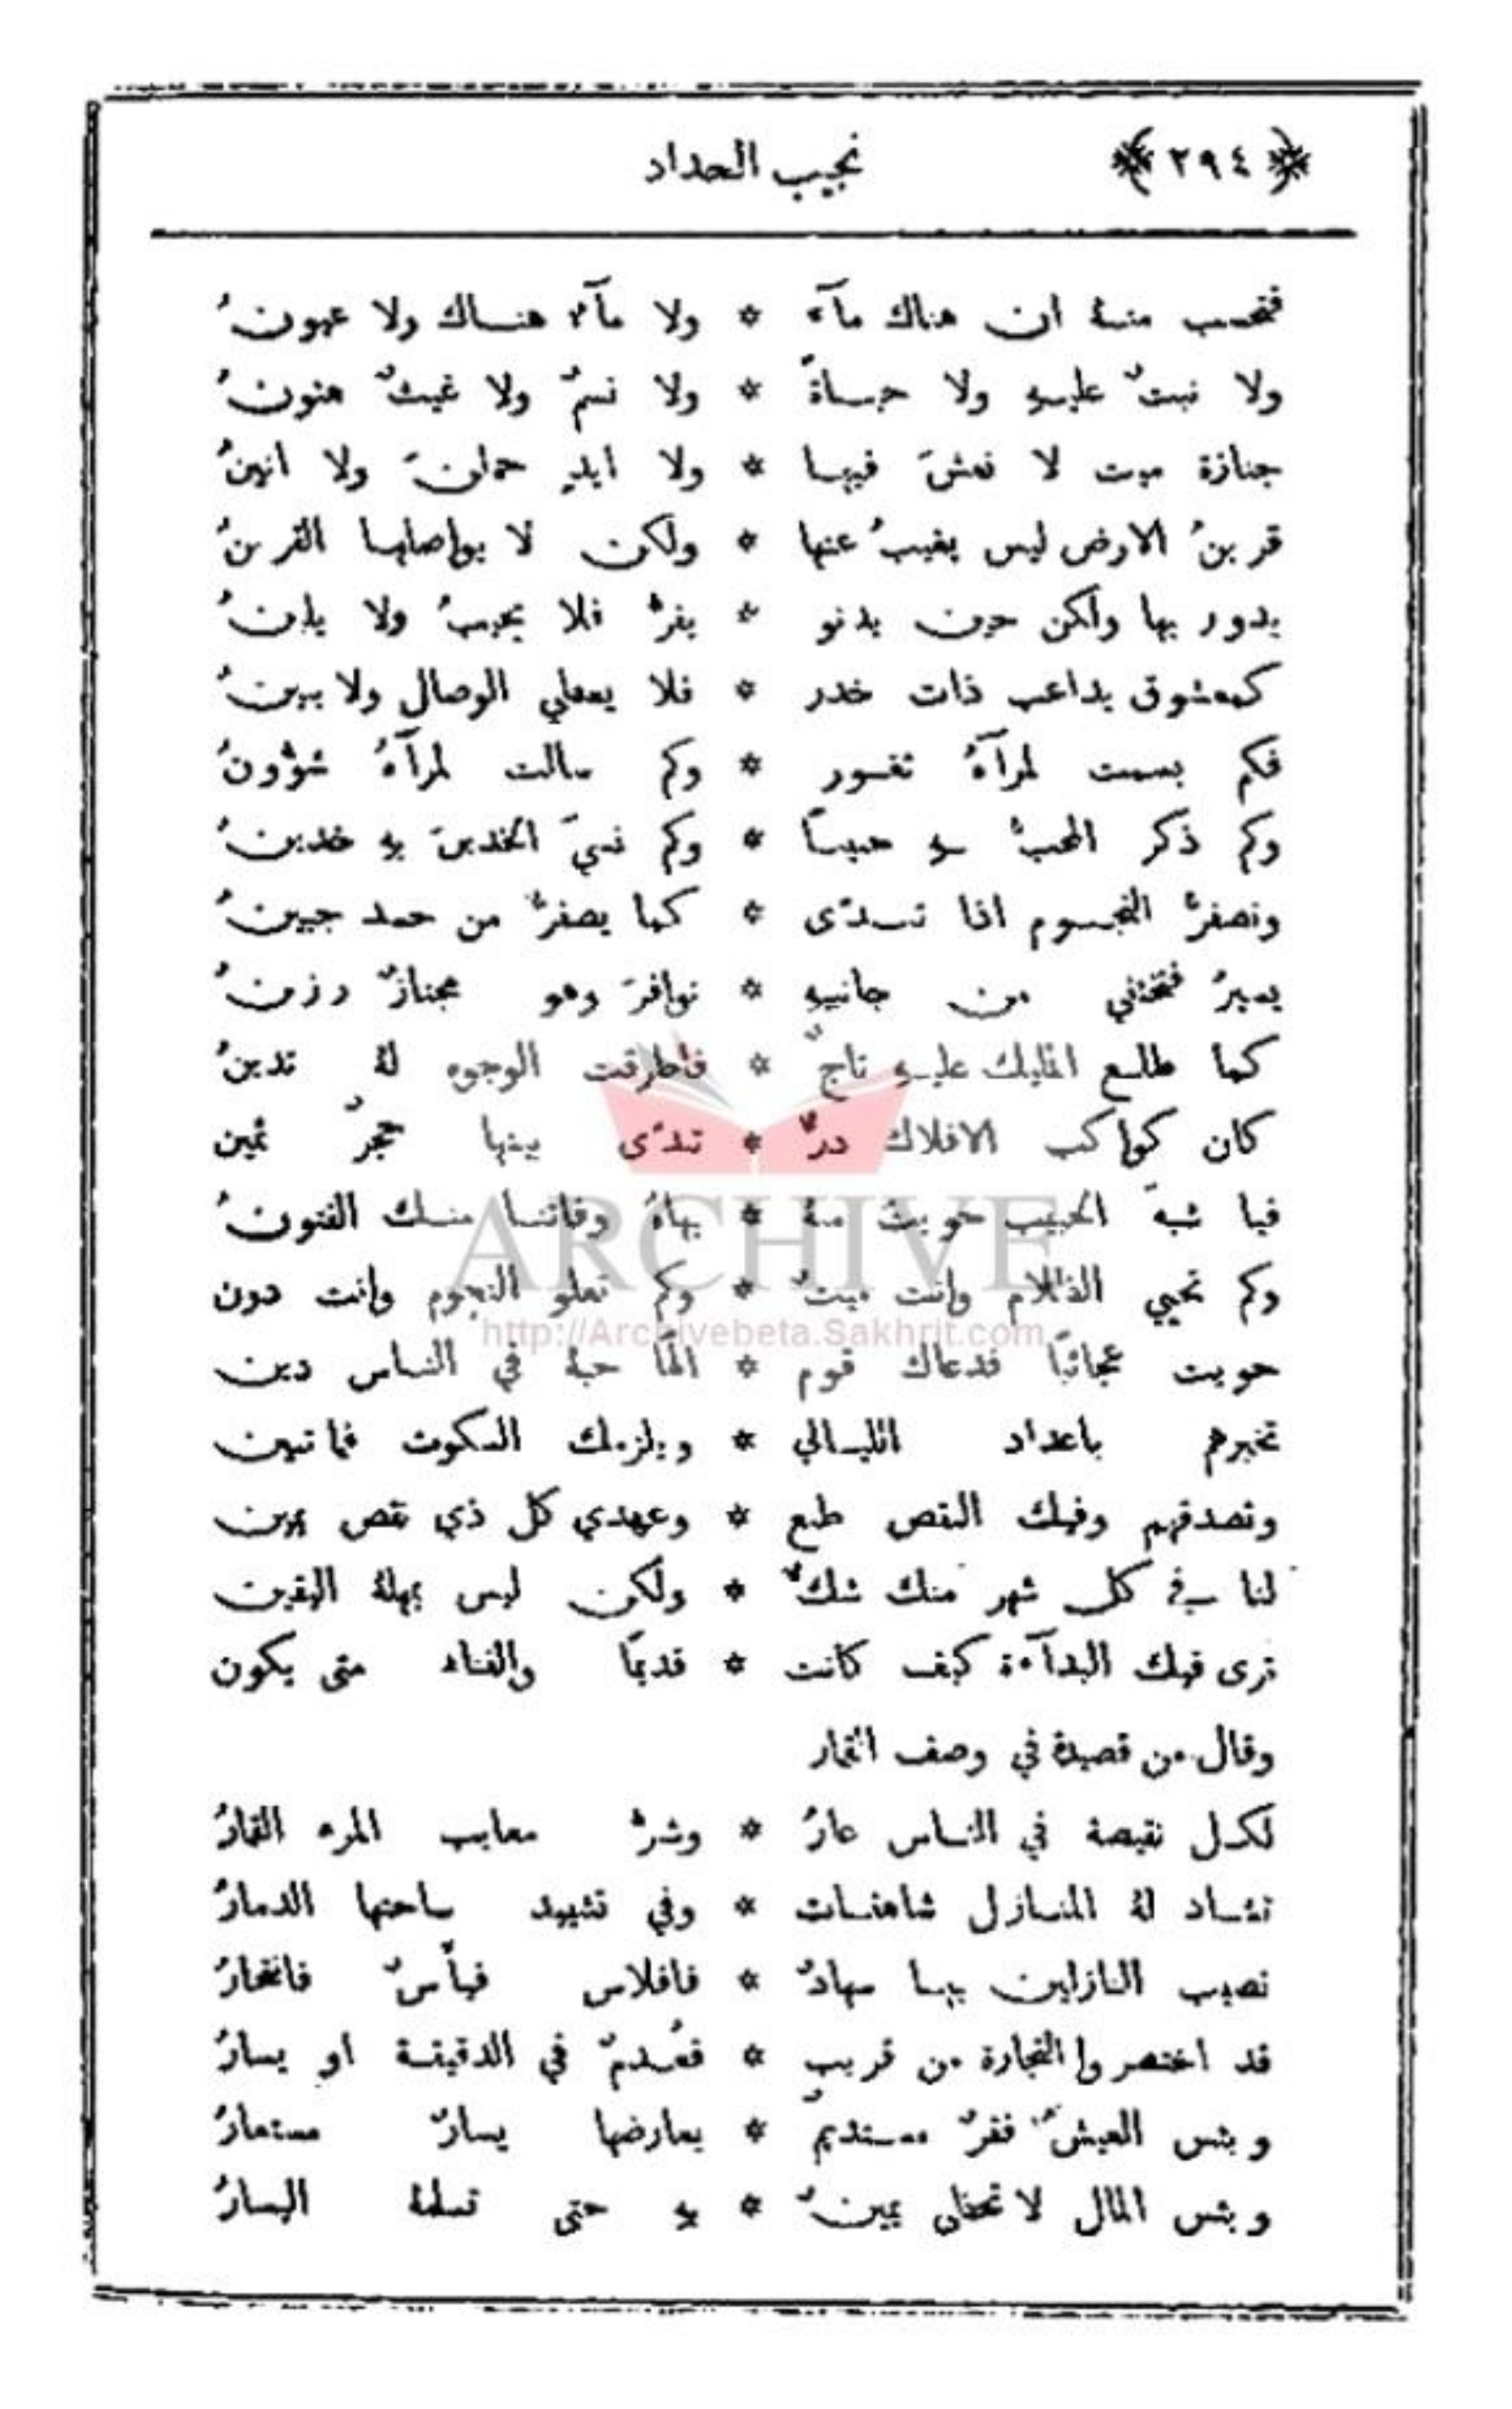 ﴿٢٩٤﴾ نجيب الحداد
فتحسب منهُ ان هناك مآء * ولا مآءٌ هناك ولا عيونُ
ولا نبتٌ عليهِ ولا حياةٌ * ولا نسمٌ ولا غيثٌ هتونُ
جنازة ميت لا نعشَ فيها * ولا ايدٍ حملنَ ولا انينُ
قرينُ الارض ليس يغيبُ عنها * ولكن لا يواصلها القرينُ
يدور بها ولكن حين يدنو * يفرُّ فلا يجيبُ ولا يلينُ
كمعشوق يداعب ذات خدر * فلا يعطي الوصال ولا يبينُ
فكم بسمت لمرآهُ ثغور * وكم سالت لمرآهُ شؤُونُ
وكم ذكر المحبُّ به حبيبًا * وكم نسيَ الخدينَ به خدينُ
وتصفرُّ النجوم اذا تبدَّى * كما يصفرُّ من حسد جبينُ
يسيرُ فتختفي من جانبيهِ * نوافرَ وهو مجتازٌ رزينُ
كما طلع المليك عليهِ تاجٌ * فأطرقت الوجوه لهُ تدينُ
كان كواكب الافلاك درٌّ * تبدَّى بينها حجرٌ ثمين
فيا شبهَ الحبيب حويت منهُ * بهاهُ وفاتنا منك الفتونُ
وكم تحيي الظلام وانت ميتٌ * وكم تعلو النجوم وانت دون
حويت عجائبًا فدعاك قوم * الهًا حبهُ في الناس دين
تخبرهم باعداد الليالي * ويلزمك السكوت فما تبين
وتصدقهم وفيك النقص طبع * وعهدي كل ذي نقص يمين
لنا في كل شهر منك شكٌّ * ولكن ليس يهلهُ اليقين
نرى فيك البدآءة كيف كانت * قديمًا والفناء متى يكون
وقال من قصيدة في وصف القمار
لكل نقيصة في الناس عارُ * وشرُّ معايب المرء القمارُ
تشاد لهُ المنازل شاهقات * وفي تشييد ساحتها الدمارُ
نصيب النازلين بها سهادٌ * فافلاس فيأسٌ فانتحارُ
قد اختصروا التجارة من قريب * فعُدمٌ في الدقيقة او يسارُ
وبئس العيشُ فقرٌ مستديمٌ * يعارضها يسارٌ مستعارُ
وبئس المال لا تحظى يمينٌ * به حتى تسلبهُ اليسارُ
ARCHIVE
http://Archivebeta.Sakhrit.com